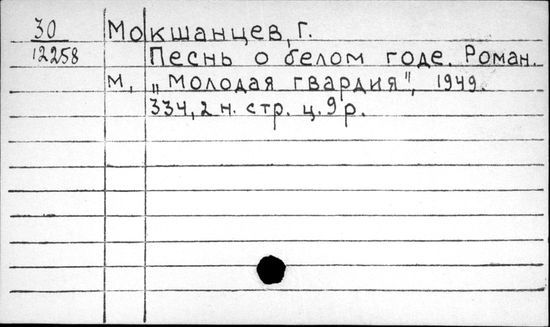 30 Мокшанцев, Г.
12258 Песнь о белом годе. Роман.
М, „Молодая гвардия", 1949.
334, 2 н. стр. ц. 9 р.